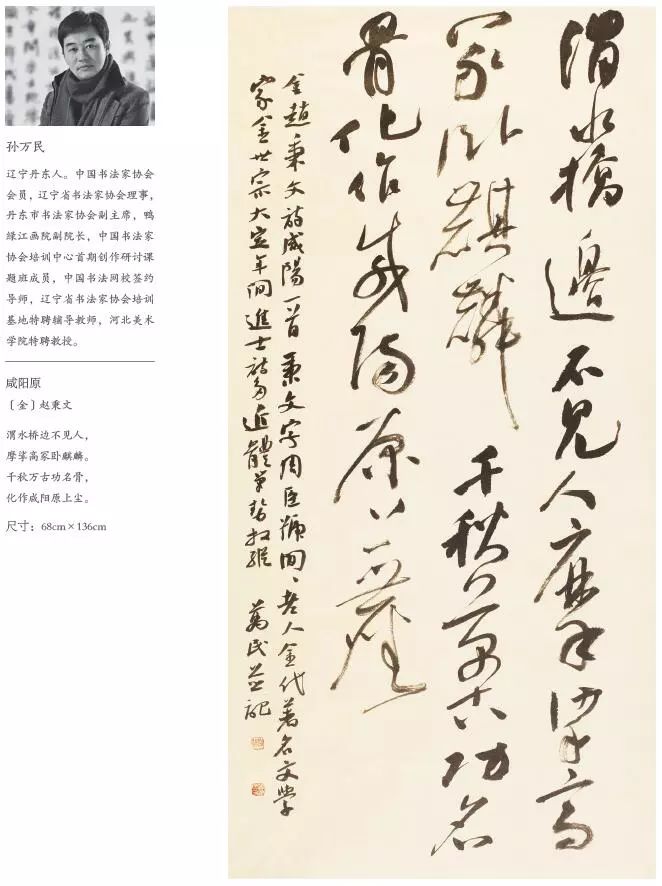 孙万民
辽宁丹东人。中国书法家协会
会员，辽宁省书法家协会理事，
丹东市书法家协会副主席，鸭
绿江画院副院长，中国书法家
协会培训中心首期创作研讨课
题班成员，中国书法网校签约
导师，辽宁省书法家协会培训
基地特聘辅导教师，河北美术
学院特聘教授。
咸阳原
〔金〕赵秉文
渭水桥边不见人，
摩挲高冢卧麒麟。
千秋万古功名骨，
化作咸阳原上尘。
尺寸：68cm×136cm
渭水橋邊不見人摩挲高
冢卧麒麟千秋萬古功名
骨化作咸陽原上塵
金趙秉文詩咸陽一首秉文字周臣號閒閒老人金代著名文學
家金世宗大定年間進士詩多近體筆勢放縱 萬民並記